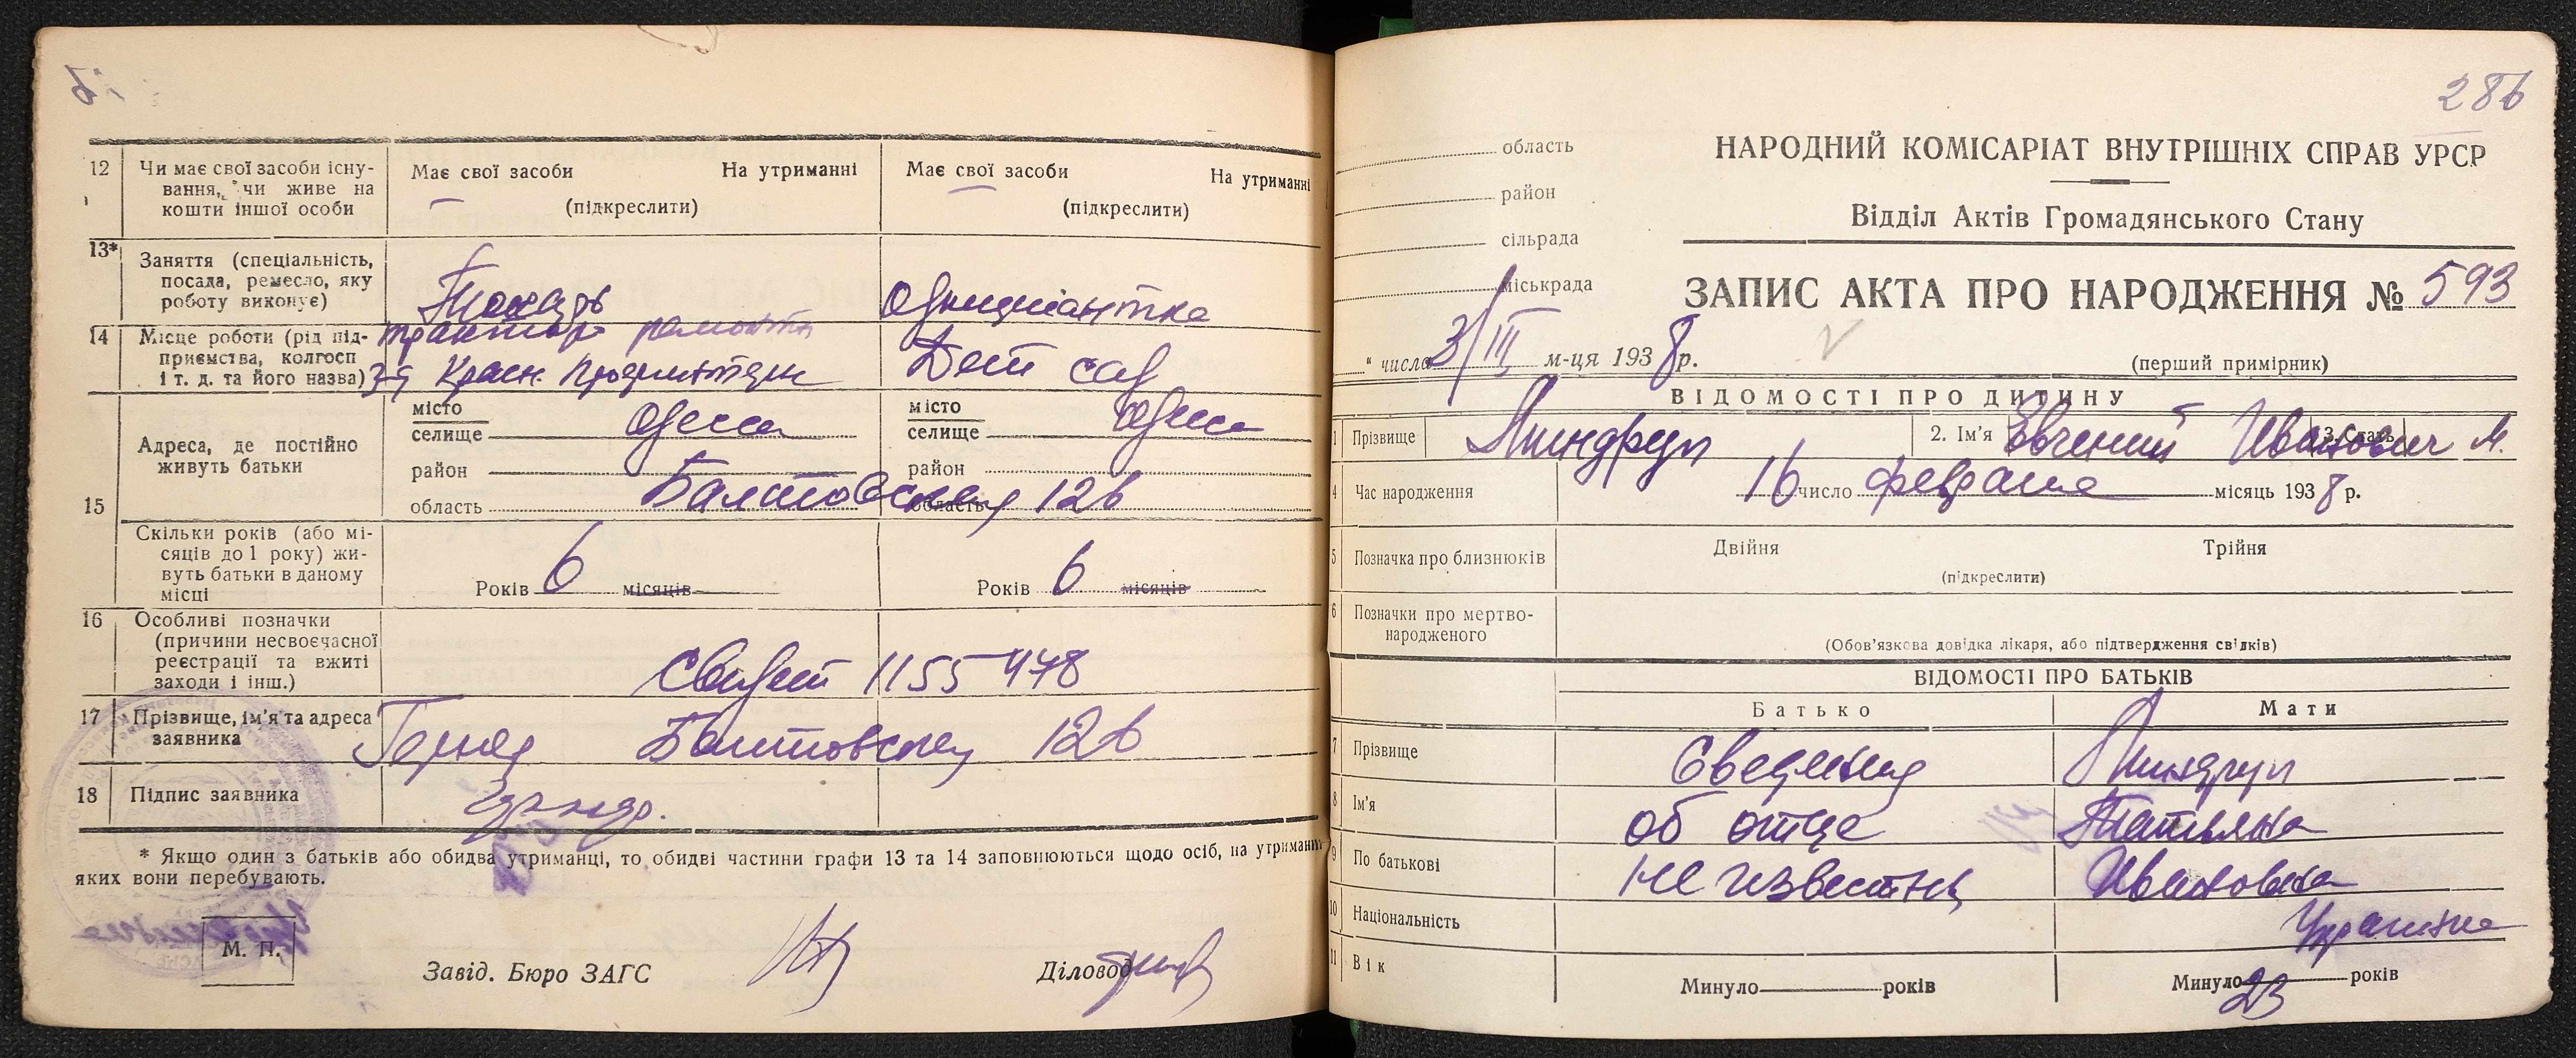 12 Чи має свої засоби існу-
вання, чи живе на
кошти іншої особи
Має свої засоби На утриманні
(підкреслити)
Має свої засоби На утриманні
(підкреслити)
13* Заняття (спеціальність,
посада, ремесло, яку
роботу виконує)
Токарь
14 Місце роботи (рід під-
приємства, колгосп
і т. д. та його назва)
Дет сад
15 Адреса, де постійно
живуть батьки
місто
селище Одесса
район
область
місто
селище Одесса
район
область
Балтовская 126
Скільки років (або мі-
сяців до 1 року) жи-
вуть батьки в даному
місці
Років 6 місяців
Років 6 місяців
16 Особливі позначки
(причини несвоєчасної
реєстрації та вжиті
заходи і інш.)
Свидет 1155478
17 Прізвище, ім'я та адреса
заявника
Балтовская 126
18 Підпис заявника
* Якщо один з батьків або обидва утриманці, то обидві частини графи 13 та 14 заповнюються щодо осіб, на утриманні
яких вони перебувають.
М. П.
Завід. Бюро ЗАГС
Діловод
286
область
район
сільрада
міськрада
НАРОДНИЙ КОМІСАРІАТ ВНУТРІШНІХ СПРАВ УРСР
Відділ Актів Громадянського Стану
ЗАПИС АКТА ПРО НАРОДЖЕННЯ № 593
" числа 3/III м-ця 1938 р.
(перший примірник)
ВІДОМОСТІ ПРО ДИТИНУ
1 Прізвище 2. Ім'я Евгений Иванович 3. Стать М.
4 Час народження 16 число февраля місяць 1938 р.
5 Позначка про близнюків Двійня Трійня
(підкреслити)
6 Позначки про мертво-
народженого
(Обов'язкова довідка лікаря, або підтвердження свідків)
ВІДОМОСТІ ПРО БАТЬКІВ
Батько Мати
7 Прізвище Сведения
8 Ім'я об отце Татьяна
9 По батькові не известны Ивановна
10 Національність Украинка
11 Вік Минуло років Минуло 23 років